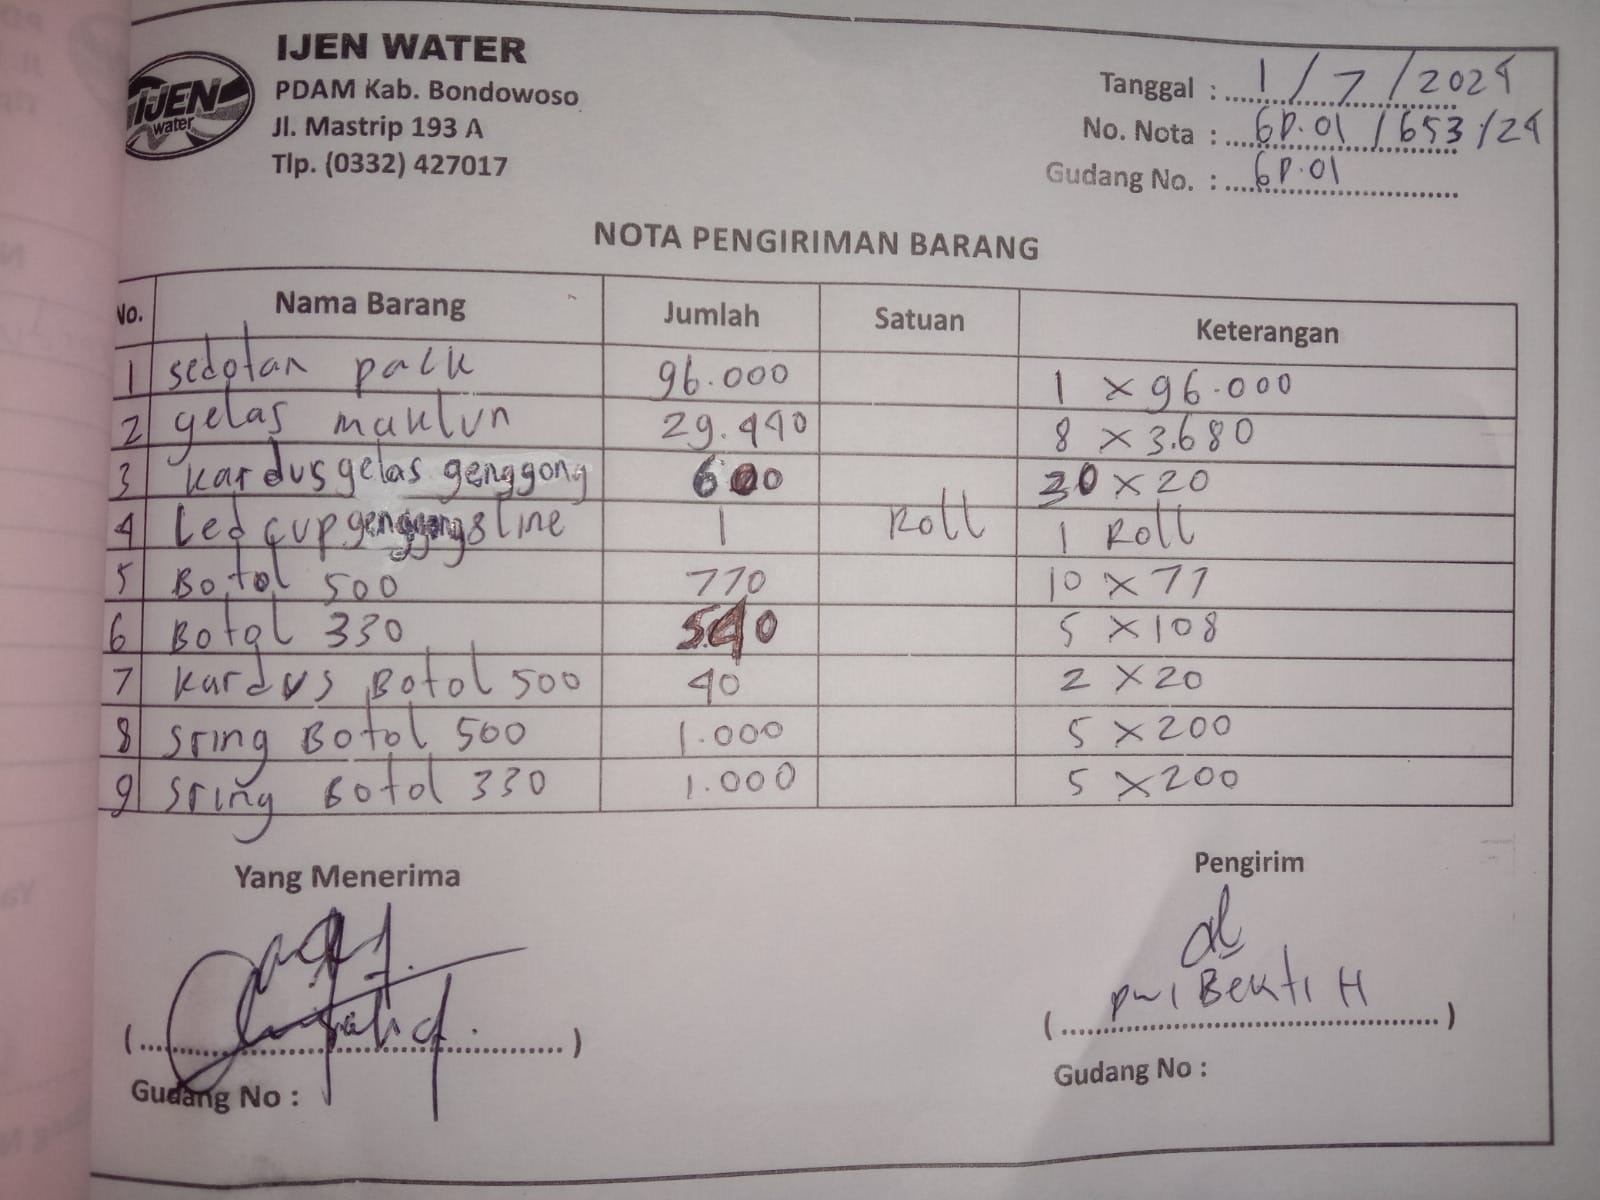 IJEN WATER
PDAM Kab. Bondowoso
Jl. Mastrip 193 A
Tlp. (0332) 427017
IJEN
water
Tanggal : 1 / 7 / 2024
No. Nota : GD.01 / 653 / 24
Gudang No. : GD.01
NOTA PENGIRIMAN BARANG
No. Nama Barang Jumlah Satuan Keterangan
1 sedotan pack 96.000 1 x 96.000
2 gelas maklun 29.440 8 x 3.680
3 kardus gelas genggong 600 30 x 20
4 Led cup genggong 8 line 1 Roll 1 Roll
5 Botol 500 770 10 x 77
6 Botol 330 540 5 x 108
7 kardus Botol 500 40 2 x 20
8 sring Botol 500 1.000 5 x 200
9 sring Botol 330 1.000 5 x 200
Yang Menerima Pengirim
Dwi Bekti H
(..........) (..........)
Gudang No : Gudang No :